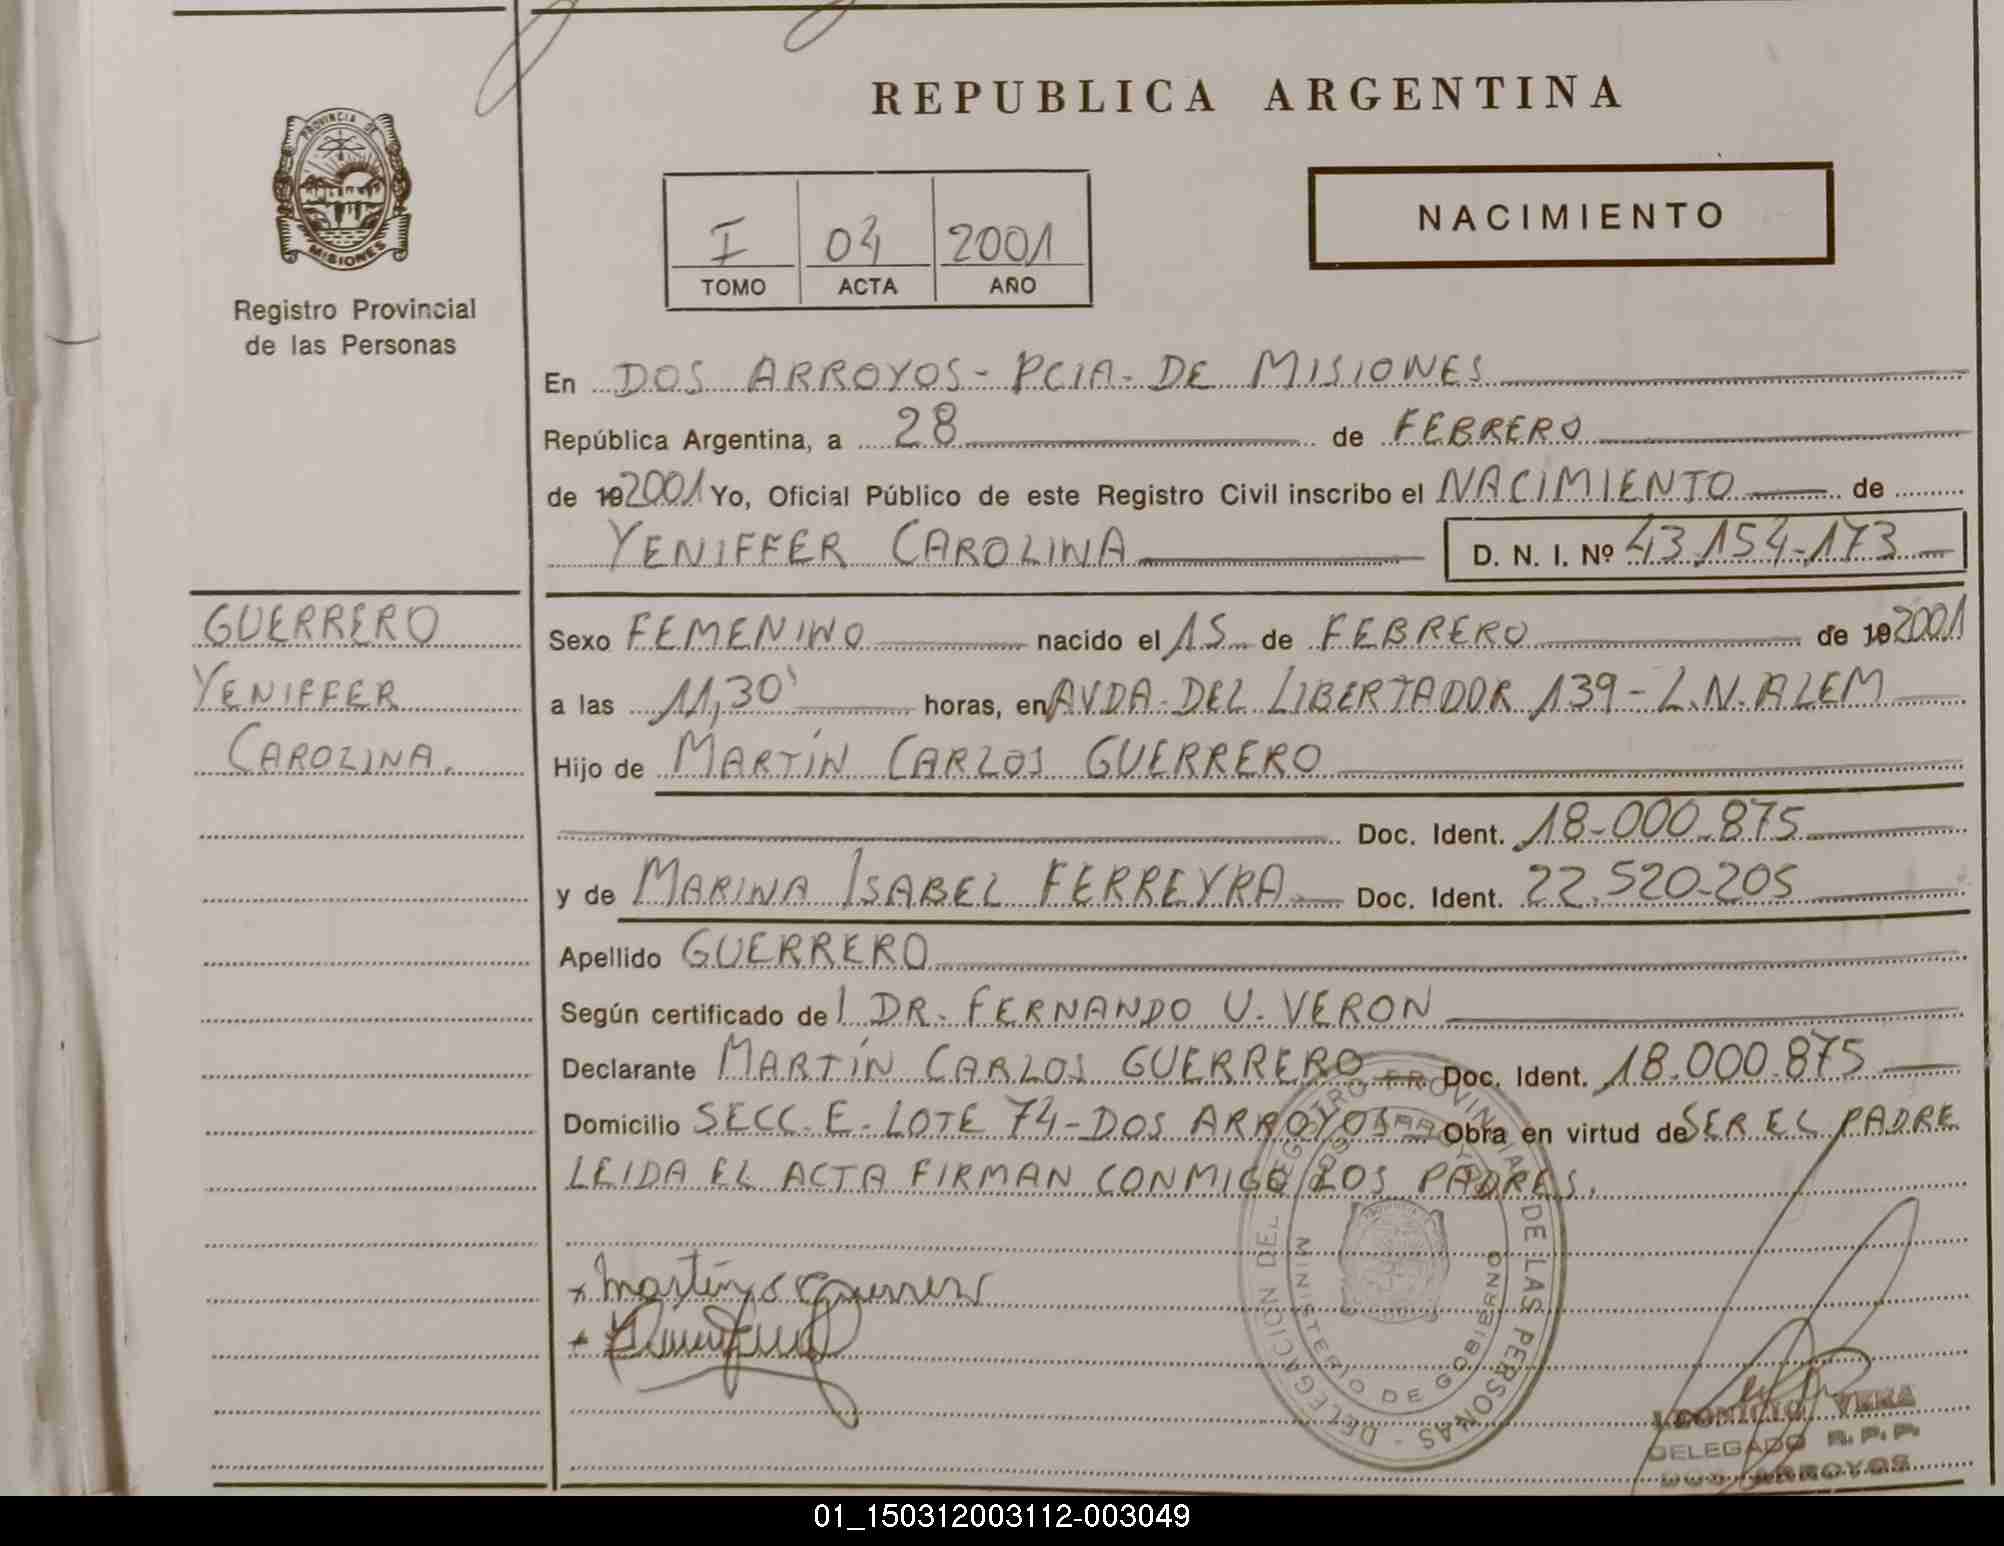 REPUBLICA ARGENTINA
PROVINCIA DE
MISIONES
Registro Provincial
de las Personas
I 04 2001
TOMO ACTA AÑO
NACIMIENTO
En DOS ARROYOS - PCIA. DE MISIONES
República Argentina, a 28 de FEBRERO
de 19 2001 Yo, Oficial Público de este Registro Civil inscribo el NACIMIENTO de
YENIFFER CAROLINA D. N. I. Nº 43.154.173
GUERRERO
YENIFFER
CAROLINA.
Sexo FEMENINO nacido el 15 de FEBRERO de 19 2001
a las 11,30' horas, en AVDA. DEL LIBERTADOR 139 - L.N. ALEM
Hijo de MARTÍN CARLOS GUERRERO
Doc. Ident. 18.000.875
y de MARINA ISABEL FERREYRA. Doc. Ident. 22.520.205
Apellido GUERRERO
Según certificado de l DR. FERNANDO U. VERON
Declarante MARTÍN CARLOS GUERRERO Doc. Ident. 18.000.875
Domicilio SECC. E - LOTE 74 - DOS ARROYOS Obra en virtud de SER EL PADRE
LEIDA EL ACTA FIRMAN CONMIGO LOS PADRES.
DELEGACIÓN DEL REGISTRO PROVINCIAL DE LAS PERSONAS -
DOS ARROYOS
MINISTERIO DE GOBIERNO
LEONICIO VERA
DELEGADO R. P. P.
DOS ARROYOS
01_150312003112-003049